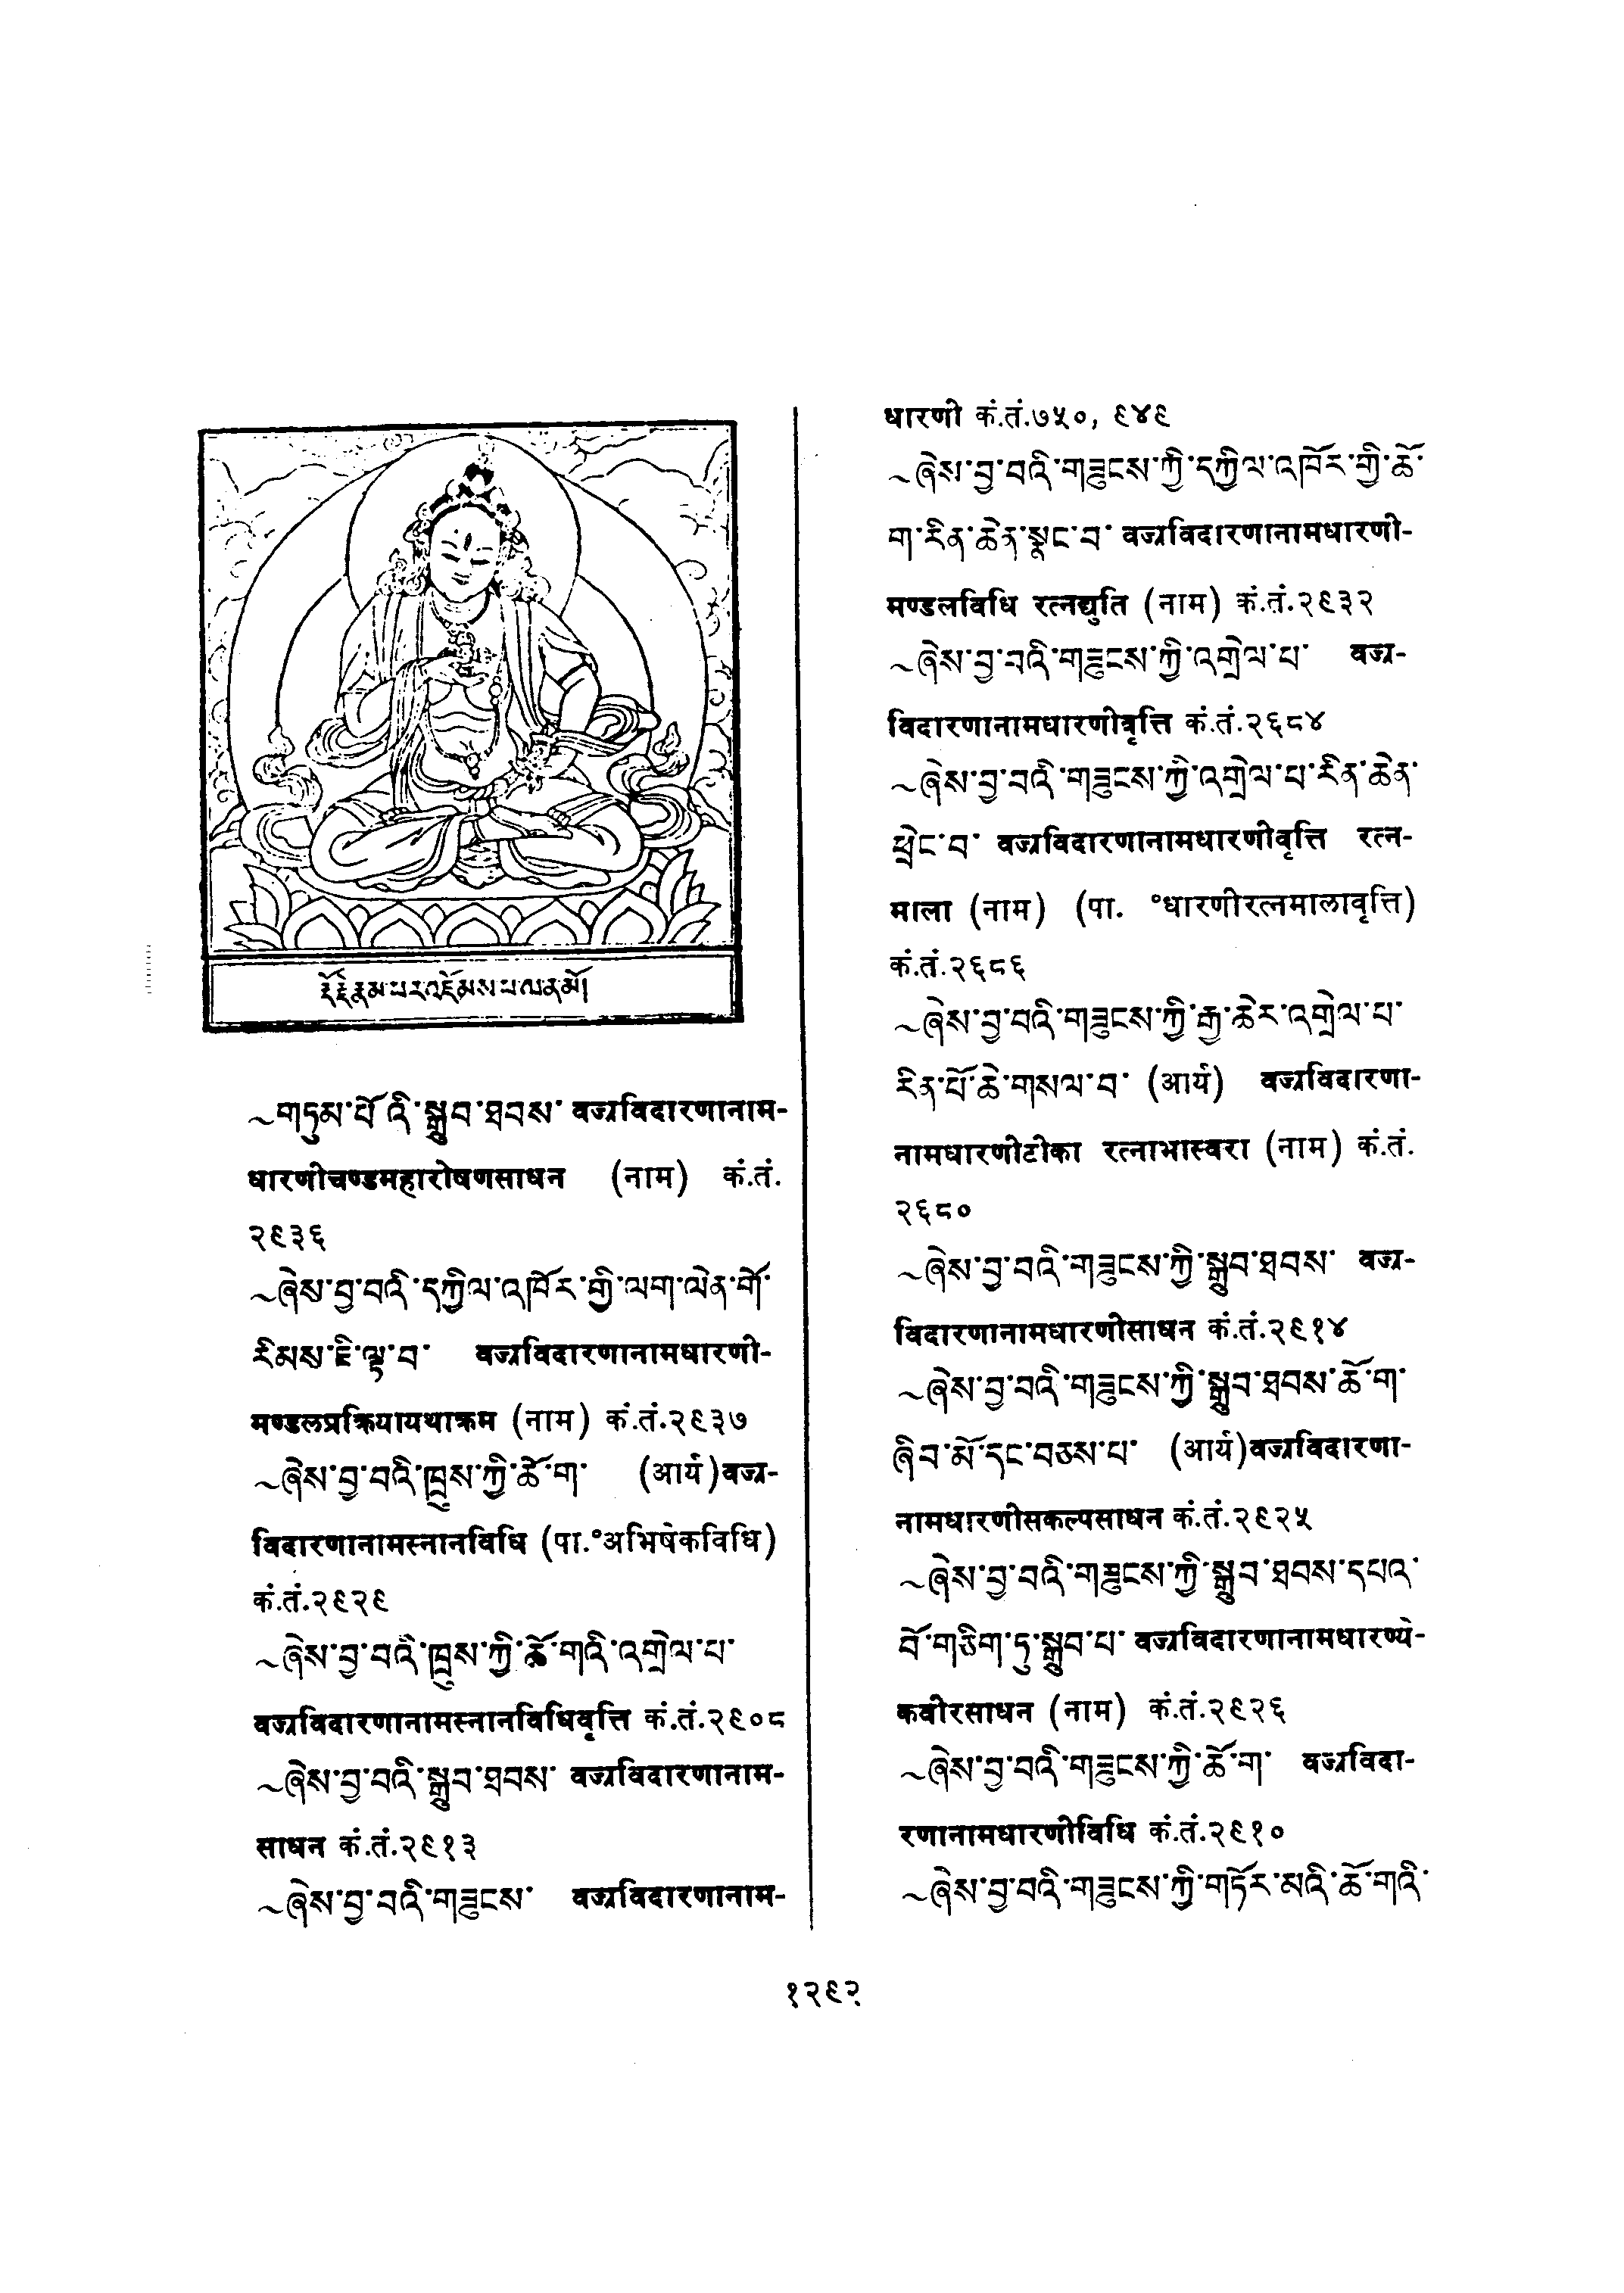 རྡོ་རྗེ་རྣམ་པར་འཇོམས་པ་ལ་ན་མོ།
~གཏུམ་པོ་འི་སྒྲུབ་ཐབས་ वज्रविदारणानाम-
धारणीचण्डमहारोषणसाधन (नाम) कं.तं.
२९३६
~ཞེས་བྱ་བའི་དཀྱིལ་འཁོར་གྱི་ལག་ལེན་གོ་
རིམས་ཇི་ལྟ་བ་ वज्रविदारणानामधारणी-
मण्डलप्रक्रियायथाक्रम (नाम) कं.तं.२९३७
~ཞེས་བྱ་བའི་ཁྲུས་ཀྱི་ཆོ་ག་ (आर्य)वज्र-
विदारणानामस्नानविधि (पा.°अभिषेकविधि)
कं.तं.२९२९
~ཞེས་བྱ་བའི་ཁྲུས་ཀྱི་ཆོ་གའི་འགྲེལ་པ་
वज्रविदारणानामस्नानविधिवृत्ति कं.तं.२९०८
~ཞེས་བྱ་བའི་སྒྲུབ་ཐབས་ वज्रविदारणानाम-
साधन कं.तं.२९१३
~ཞེས་བྱ་བའི་གཟུངས་ वज्रविदारणानाम-
धारणी कं.तं.७५०, ९४९
~ཞེས་བྱ་བའི་གཟུངས་ཀྱི་དཀྱིལ་འཁོར་གྱི་ཆོ་
ག་རིན་ཆེན་སྣང་བ་ वज्रविदारणानामधारणी-
मण्डलविधि रत्नद्युति (नाम) कं.तं.२९३२
~ཞེས་བྱ་བའི་གཟུངས་ཀྱི་འགྲེལ་པ་ वज्र-
विदारणानामधारणीवृत्ति कं.तं.२६८४
~ཞེས་བྱ་བའི་གཟུངས་ཀྱི་འགྲེལ་པ་རིན་ཆེན་
ཕྲེང་བ་ वज्रविदारणानामधारणीवृत्ति रत्न-
माला (नाम) (पा. °धारणीरत्नमालावृत्ति)
कं.तं.२६८६
~ཞེས་བྱ་བའི་གཟུངས་ཀྱི་རྒྱ་ཆེར་འགྲེལ་པ་
རིན་པོ་ཆེ་གསལ་བ་ (आर्य) वज्रविदारणा-
नामधारणीटीका रत्नाभास्वरा (नाम) कं.तं.
२६८०
~ཞེས་བྱ་བའི་གཟུངས་ཀྱི་སྒྲུབ་ཐབས་ वज्र-
विदारणानामधारणीसाधन कं.तं.२९१४
~ཞེས་བྱ་བའི་གཟུངས་ཀྱི་སྒྲུབ་ཐབས་ཆོ་ག་
ཞིབ་མོ་དང་བཅས་པ་ (आर्य)वज्रविदारणा-
नामधारणीसकल्पसाधन कं.तं.२९२५
~ཞེས་བྱ་བའི་གཟུངས་ཀྱི་སྒྲུབ་ཐབས་དཔའ་
བོ་གཅིག་ཏུ་སྒྲུབ་པ་ वज्रविदारणानामधारण्ये-
कवीरसाधन (नाम) कं.तं.२९२६
~ཞེས་བྱ་བའི་གཟུངས་ཀྱི་ཆོ་ག་ वज्रविदा-
रणानामधारणीविधि कं.तं.२९१०
~ཞེས་བྱ་བའི་གཟུངས་ཀྱི་གཏོར་མའི་ཆོ་གའི་
१२९२